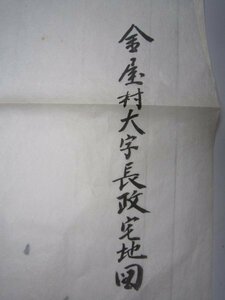 金屋村大字長政宅地図